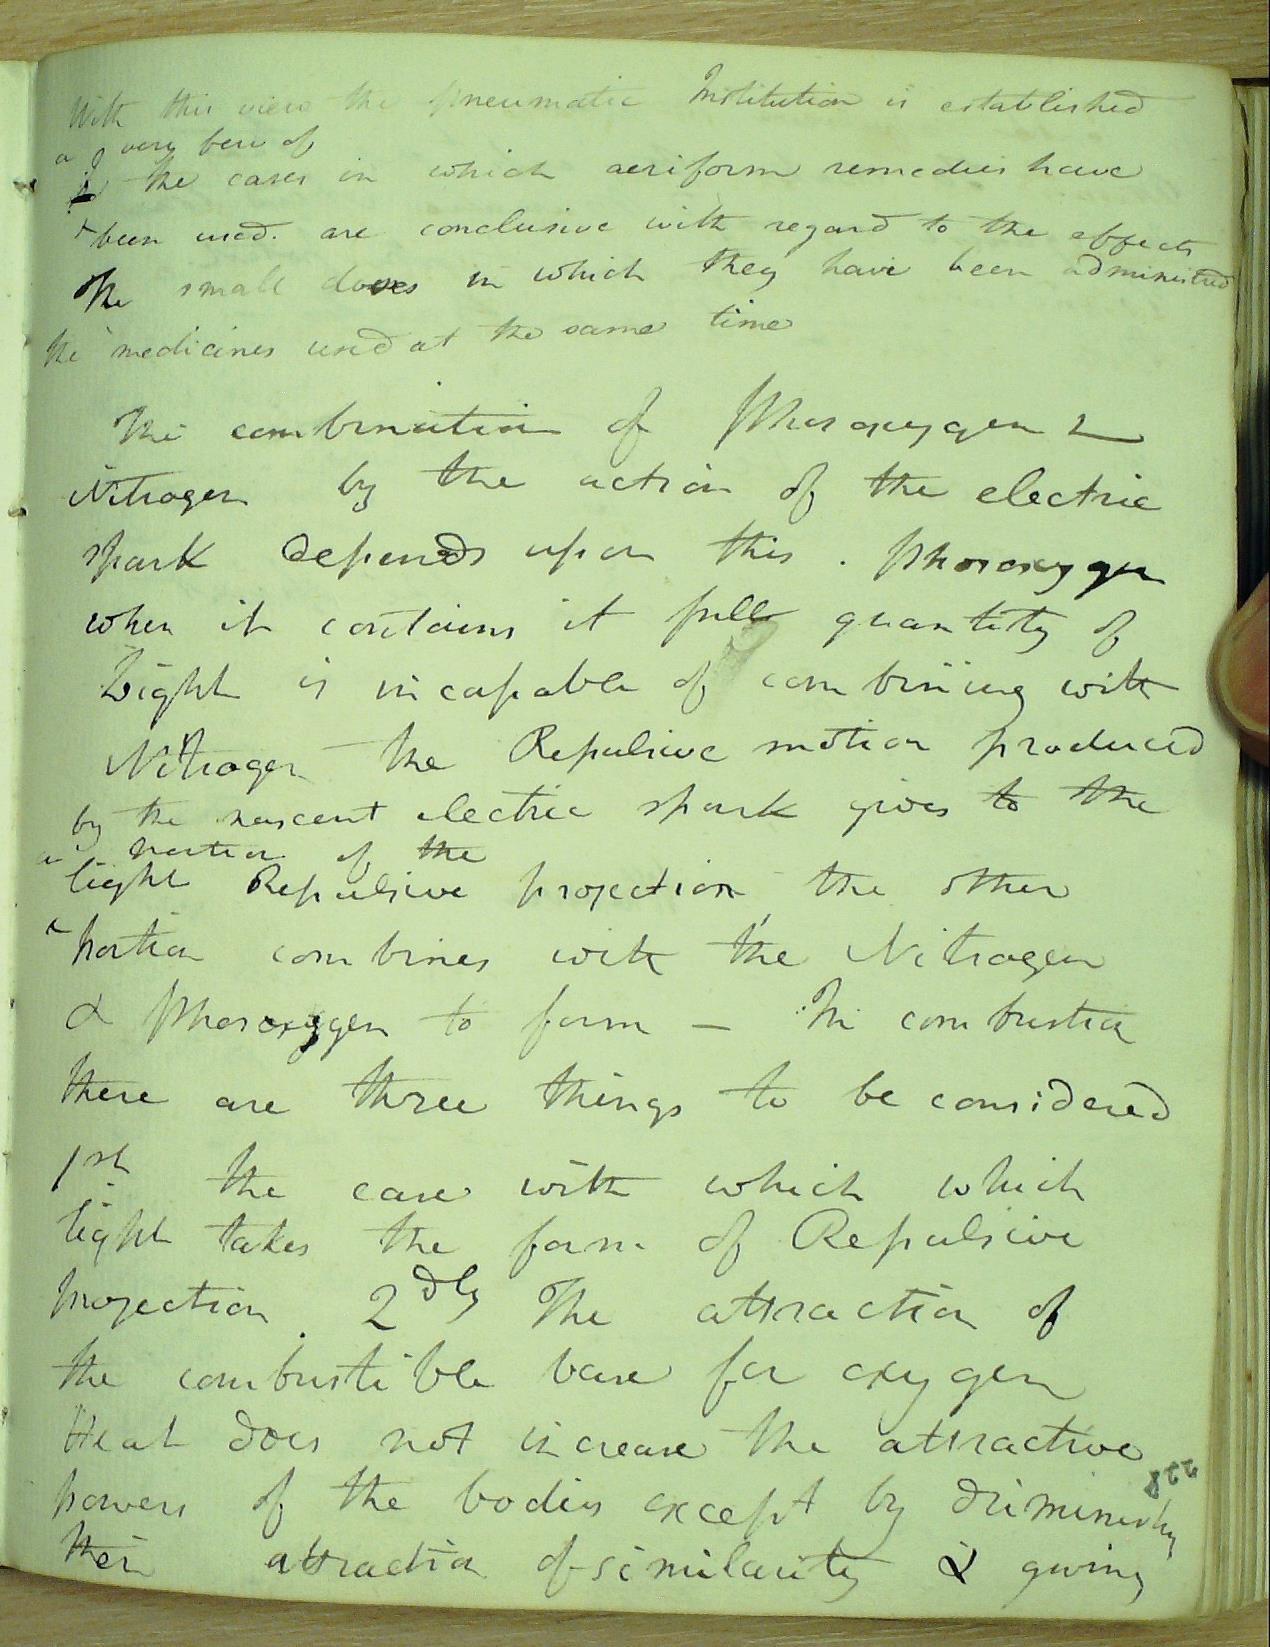 With this view the pneumatic Institution is established
a very few of
the cases in which aeriform remedies have
been used. are conclusive with regard to the effects
The small doses in which they have been administred
the medicines used at the same time
The combination of Phosoxygen &
Nitrogen by the action of the electric
spark depends upon this. phosoxygen
when it contains it full quantity of
Light is incapable of combining with
Nitrogen the Repulsive motion produced
by the nascent electric spark gives to the
a portion of the
light Repulsive projection, the other
portion combines with the Nitrogen
& Phosoxygen to form — In combustion
there are three things to be considered
1st the ease with which which
light takes the form of Repulsive
Projection. 2dly The attraction of
the combustible base for oxygen
Heat does not increase the attractive
powers of the bodies except by diminishg
their attraction of similarity & giving